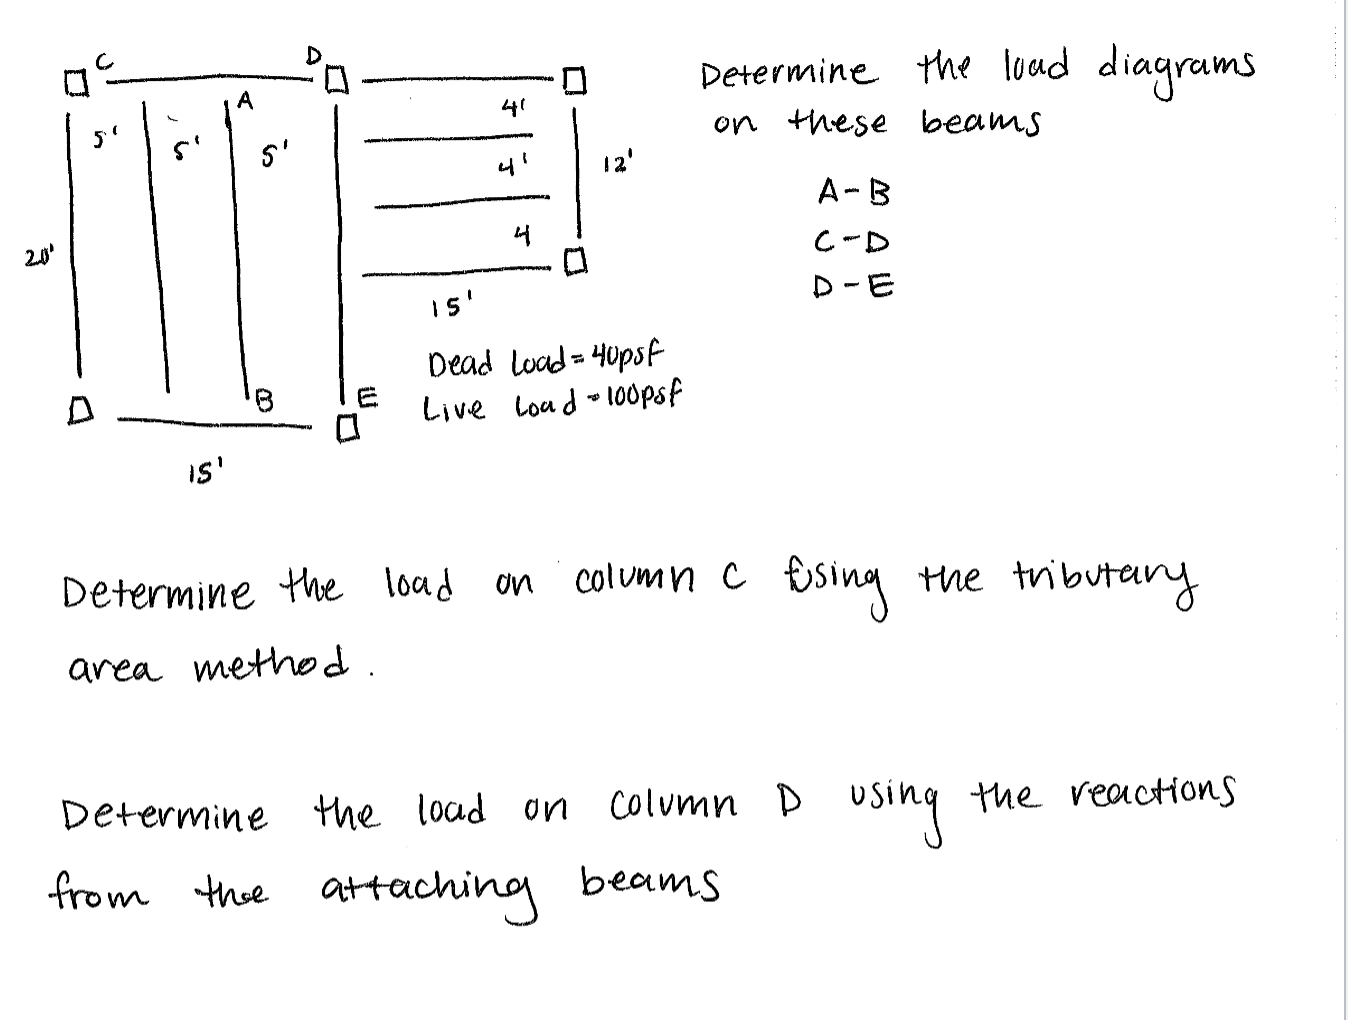 C D
A
5' 5' 5'
4'
4'
4
12'
20'
15'
B E
15'
Dead Load = 40psf
Live Load = 100psf
Determine the load diagrams
on these beams
A-B
C-D
D-E
Determine the load on column C using the tributary
area method.
Determine the load on column D using the reactions
from the attaching beams